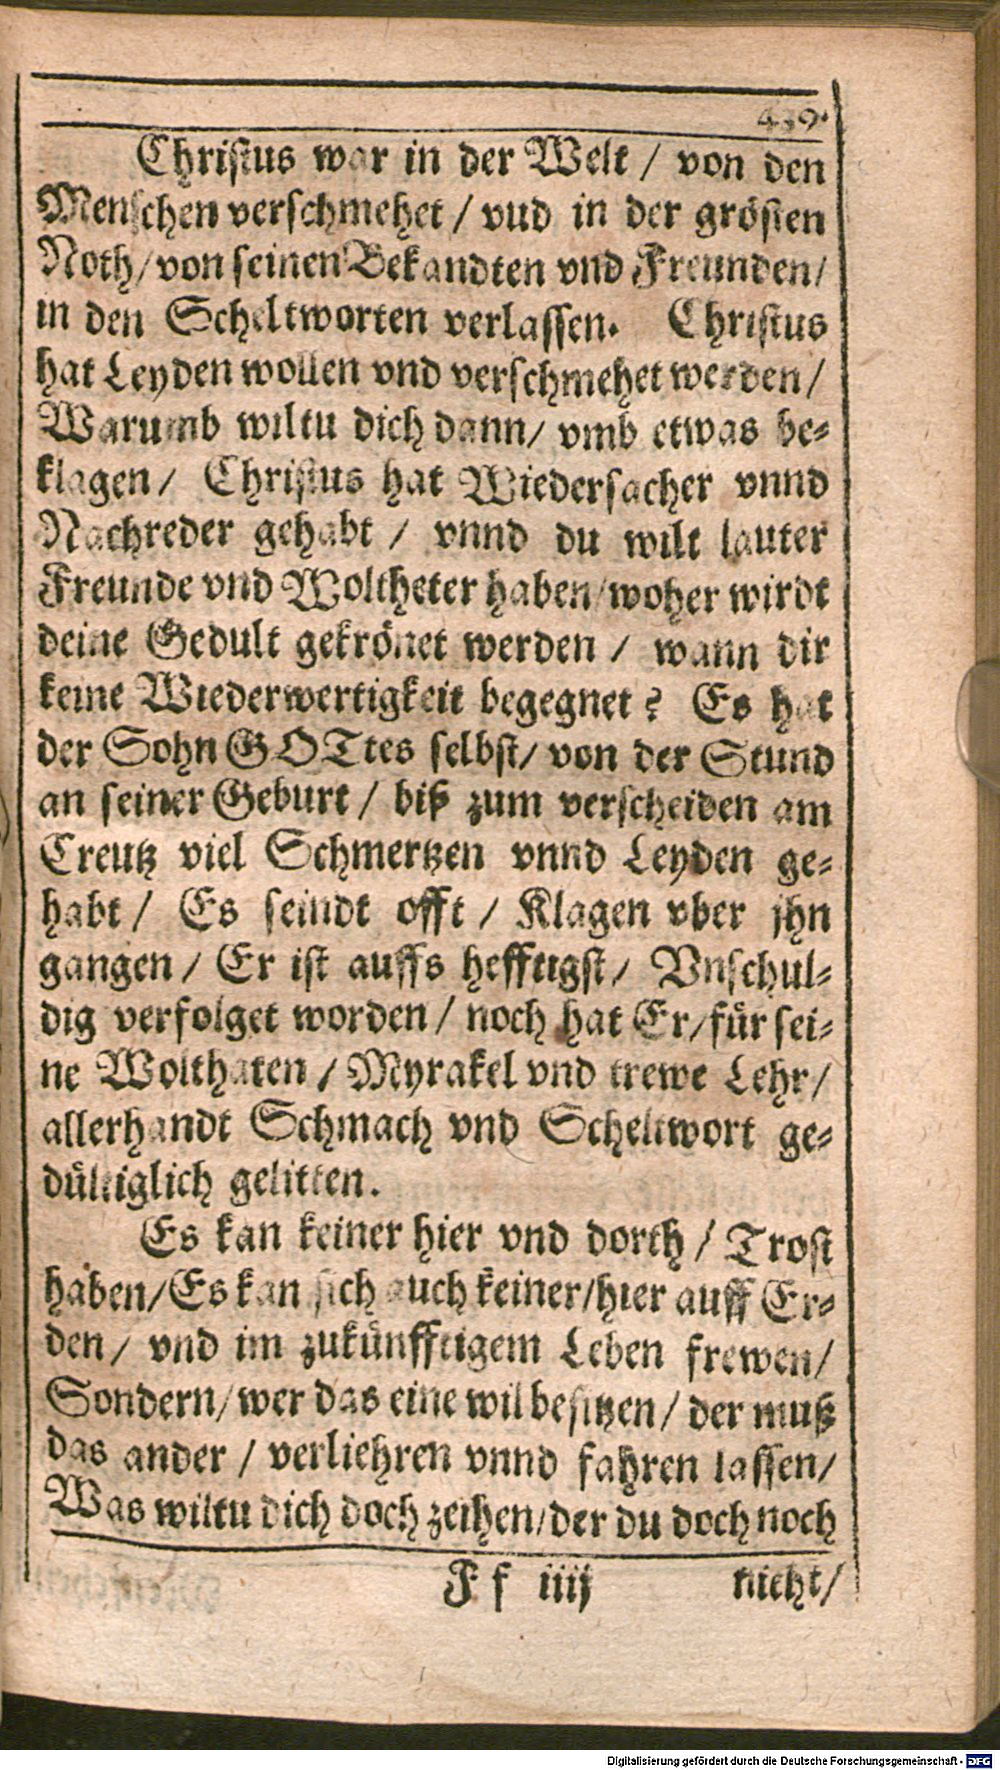 439.
Christus war in der Welt / von den
Menschen verschmehet / vud in der grösten
Noth / von seinen Bekandten vnd Freunden /
in den Scheltworten verlassen. Christus
hat Leyden wollen vnd verschmehet werden /
Warumb wiltu dich dann / vmb etwas be-
klagen / Christus hat Wiedersacher vnnd
Nachreder gehabt / vnnd du wilt lauter
Freunde vnd Woltheter haben / woher wirdt
deine Gedult gekrönet werden / wann dir
keine Wiederwertigkeit begegnet? Es hat
der Sohn GOTtes selbst / von der Stund
an seiner Geburt / biß zum verscheiden am
Creutz viel Schmertzen vnnd Leyden ge-
habt / Es seindt offt / Klagen vber jhn
gangen / Er ist auffs hefftigst / Vnschul-
dig verfolget worden / noch hat Er / für sei-
ne Wolthaten / Myrakel vnd trewe Lehr /
allerhandt Schmach vnd Scheltwort ge-
dültiglich gelitten.
Es kan keiner hier vnd dorth / Trost
haben / Es kan sich auch keiner / hier auff Er-
den / vnd im zukünfftigem Leben frewen /
Sondern / wer das eine wil besitzen / der muß
das ander / verliehren vnnd fahren lassen /
Was wiltu dich doch zeihen / der du doch noch
F f iiij nicht /
Digitalisierung gefördert durch die Deutsche Forschungsgemeinschaft - DFG